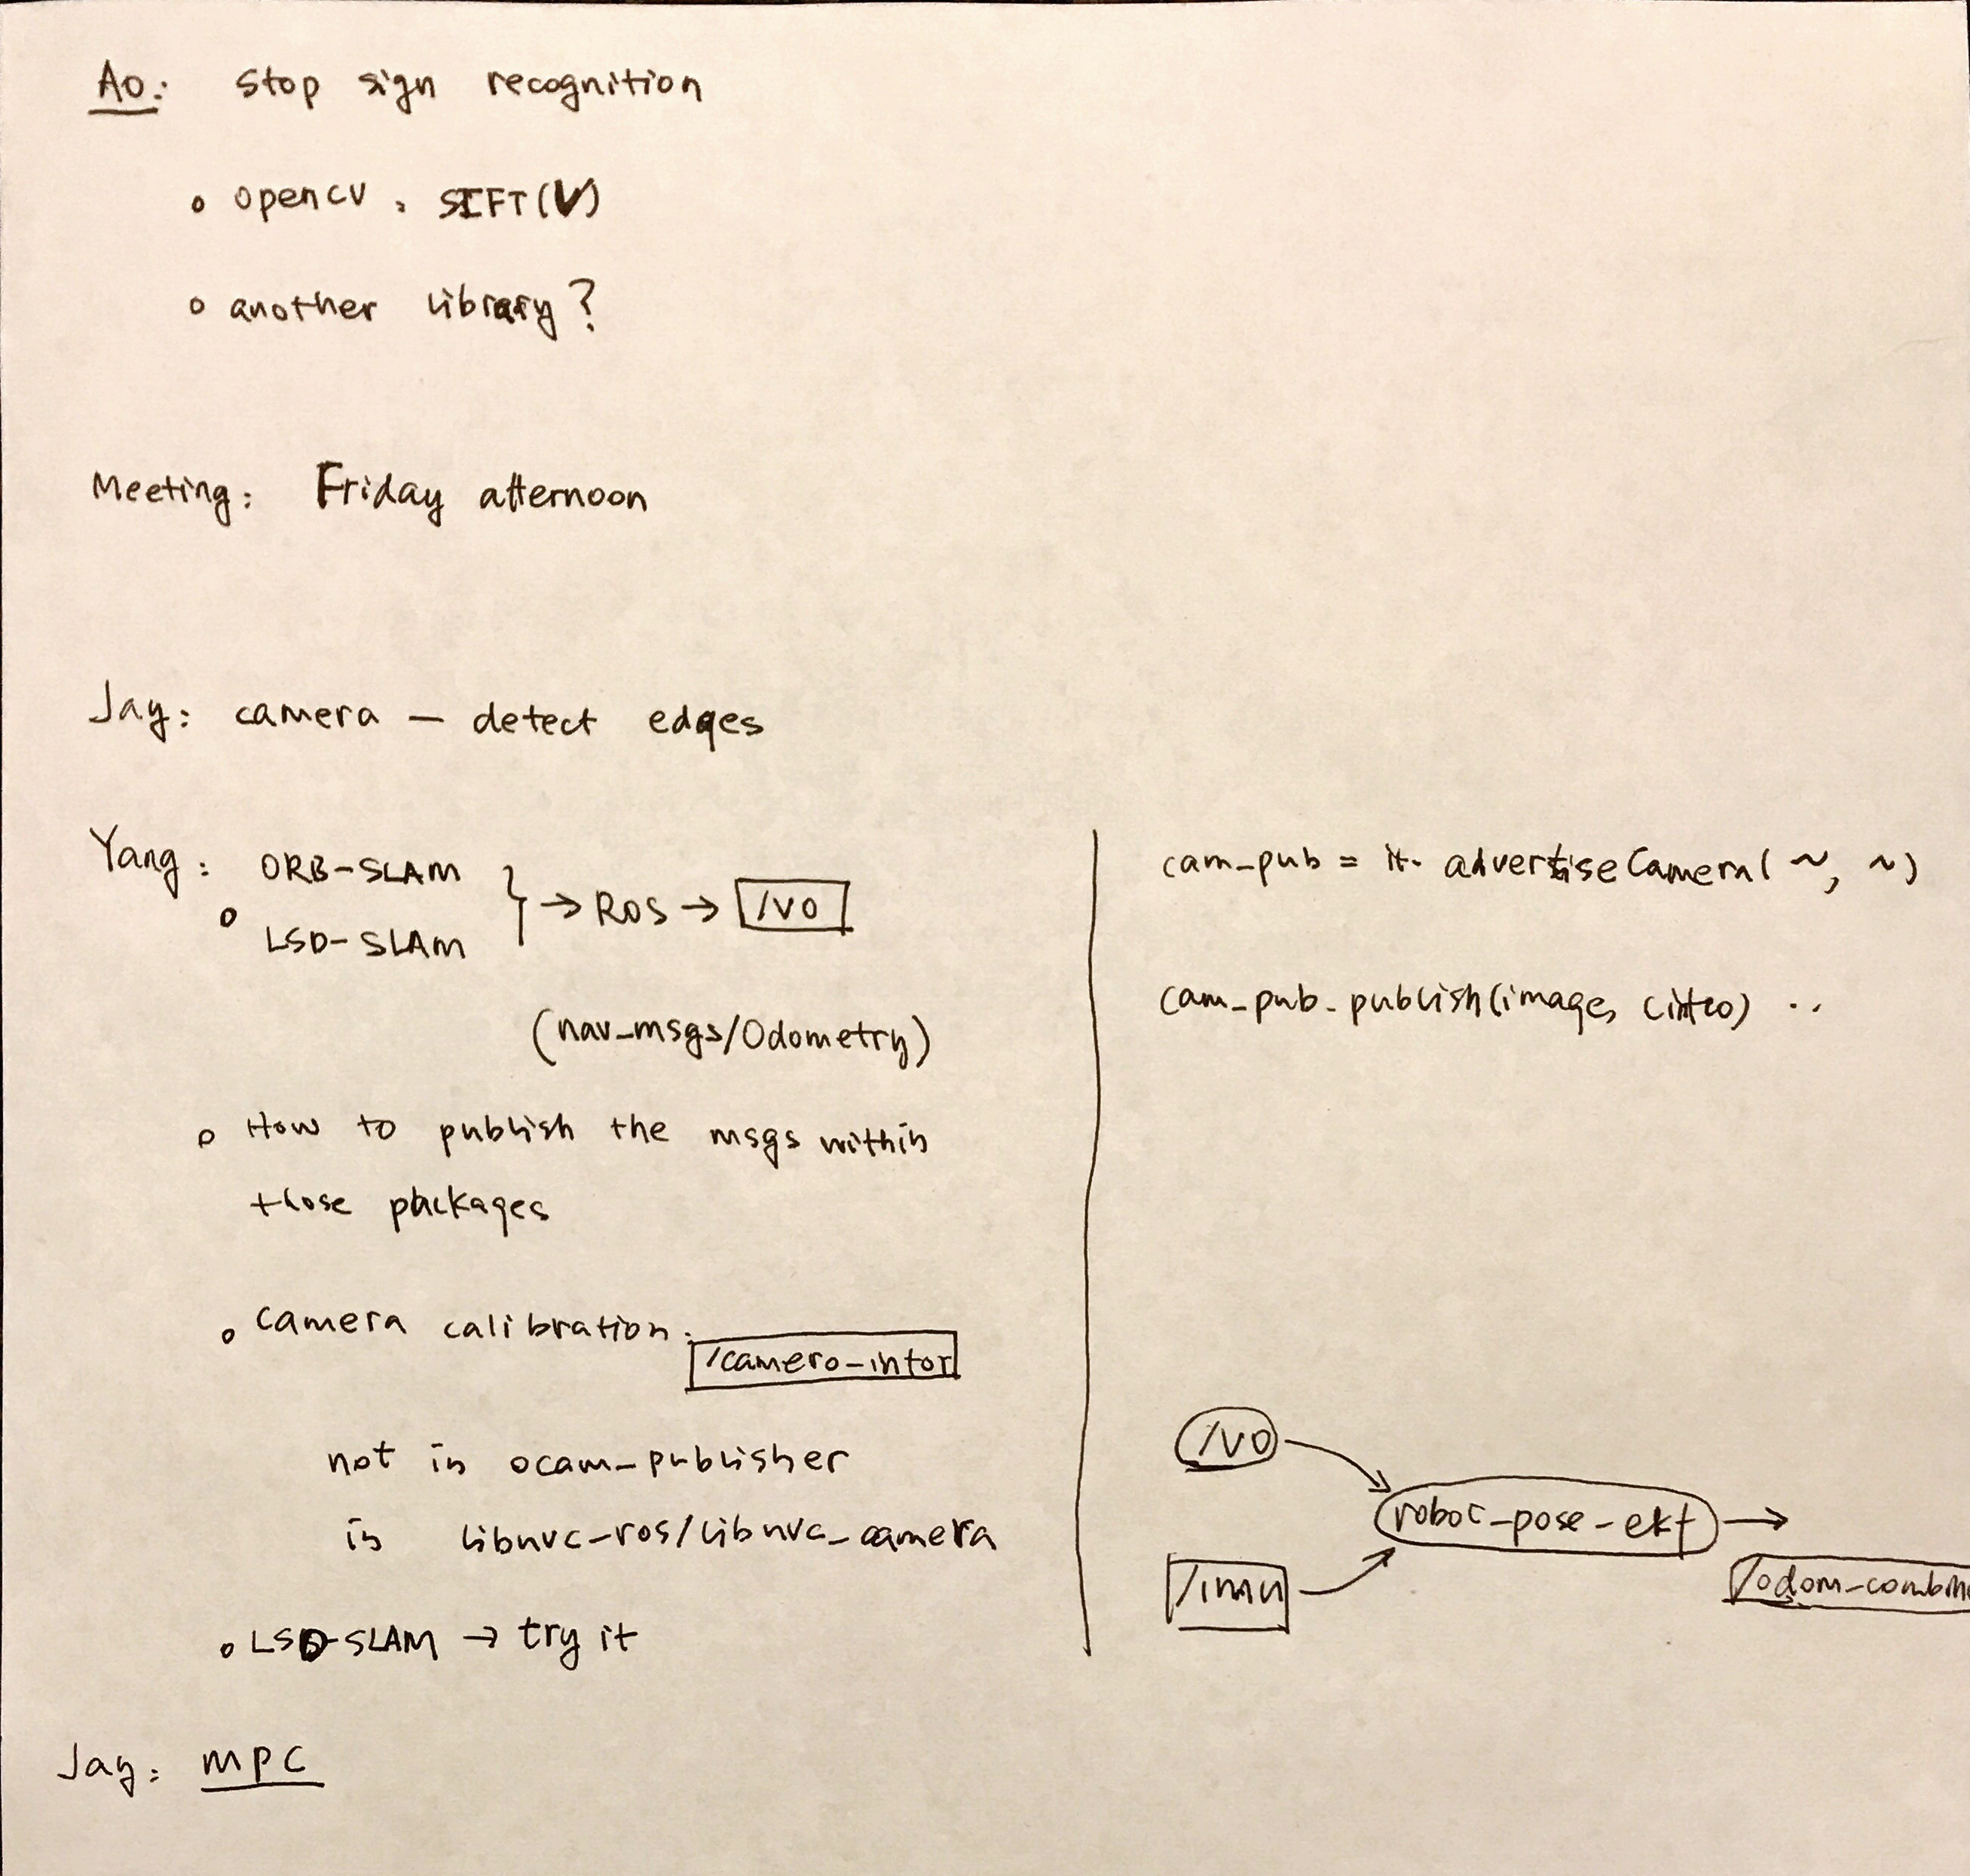 Ao: Stop sign recognition
opencv: SIFT(V)
another library?
Meeting: Friday afternoon
Jay: camera — detect edges
Yang: ORB-SLAM
LSD-SLAM
→ ROS → /vo
(nav_msgs/Odometry)
How to publish the msgs within
those packages
camera calibration:
not in ocam_publisher
in libuvc-ros/libuvc_camera
LSD-SLAM → try it
Jay: MPC
cam_pub = it. advertiseCamera( ~, ~)
cam_pub.publish(image, ..
/vo
robot-pose-ekf →
/imu
/odom-combin